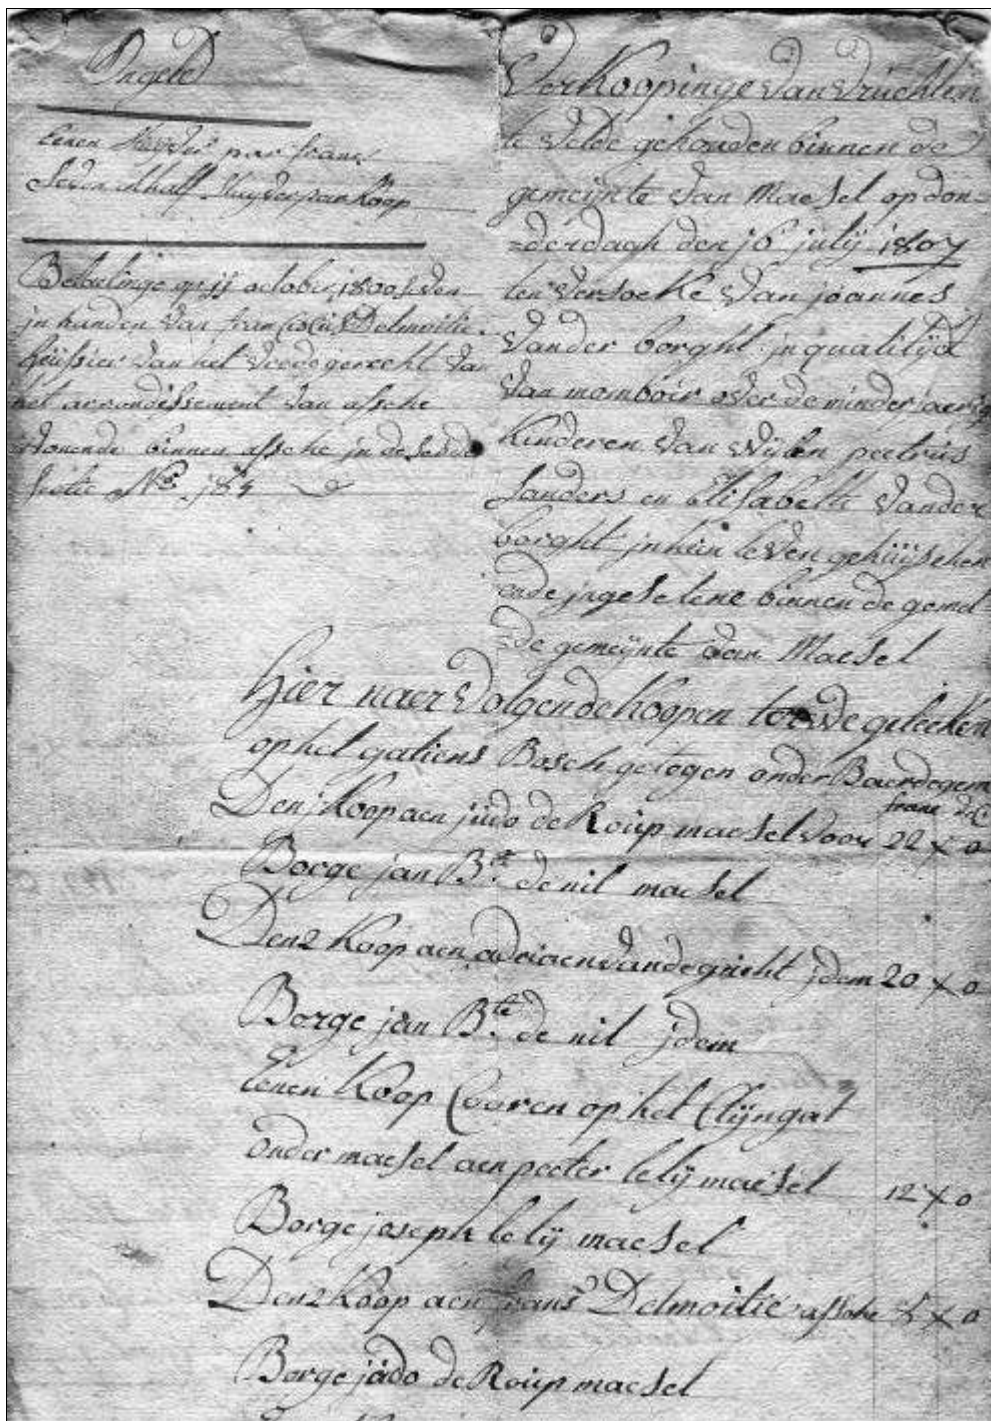 Ongeld
Eenen stuyver par franc
Seven en half stuyver par koop
Betaelinge op 15 october 1800 seven
in handen van francois Delmoitie
huissier van het vredegerecht van
het arrondissement van assche
wonende binnen assche in de
sectie No. 184
Verkoopinge van vruchten
te velde gehouden binnen de
gemeijnte van Maesel op don=
=derdagh den 16 julij 1807
ten versoeke van joannes
vander borght in qualitijd
van momboir over de minderjaerige
kinderen van wijlen peetrus
Sanders en Elisabeth vander
borght in hun leven gehuijschen
ende ingesetene binnen de gemel=
=de gemeijnte van Maesel
Hier naer volgen de koopen
op het gatiens Bosch gelegen onder Baerdegem
franc
Den 1 koop aen judo de Roup maesel voor 22 x 0
Borge jan Bte de nil maesel
Den 2 koop aen adriaen vande gucht jdem 20 x 0
Borge jan Bte de nil jdem
Eenen koop Cooren op het Clijngat
onder maesel aen peeter lelij maesel 12 x 0
Borge joseph lelij maesel
Den 2 koop aen frans Delmoitié assche 5 x 0
Borge judo de Roup maesel